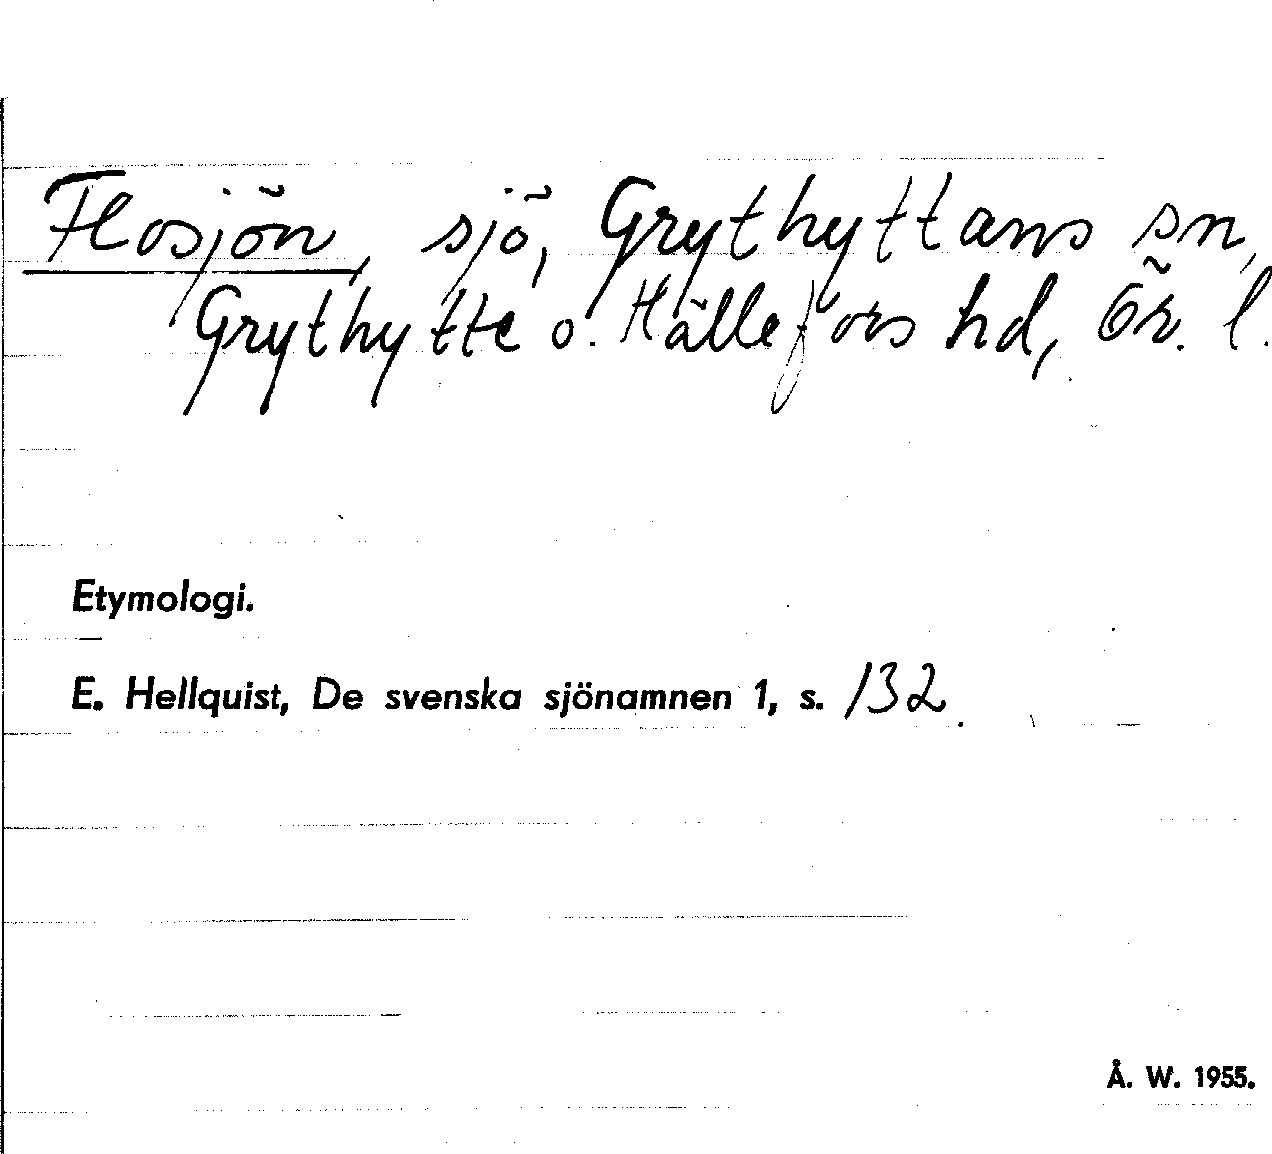 Flosjön, sjö, Grythyttans sn,
Grythytte o. Hällefors hd, Ör. l.
Etymologi.
E. Hellquist, De svenska sjönamnen 1, s. 132.
Å. W. 1955.